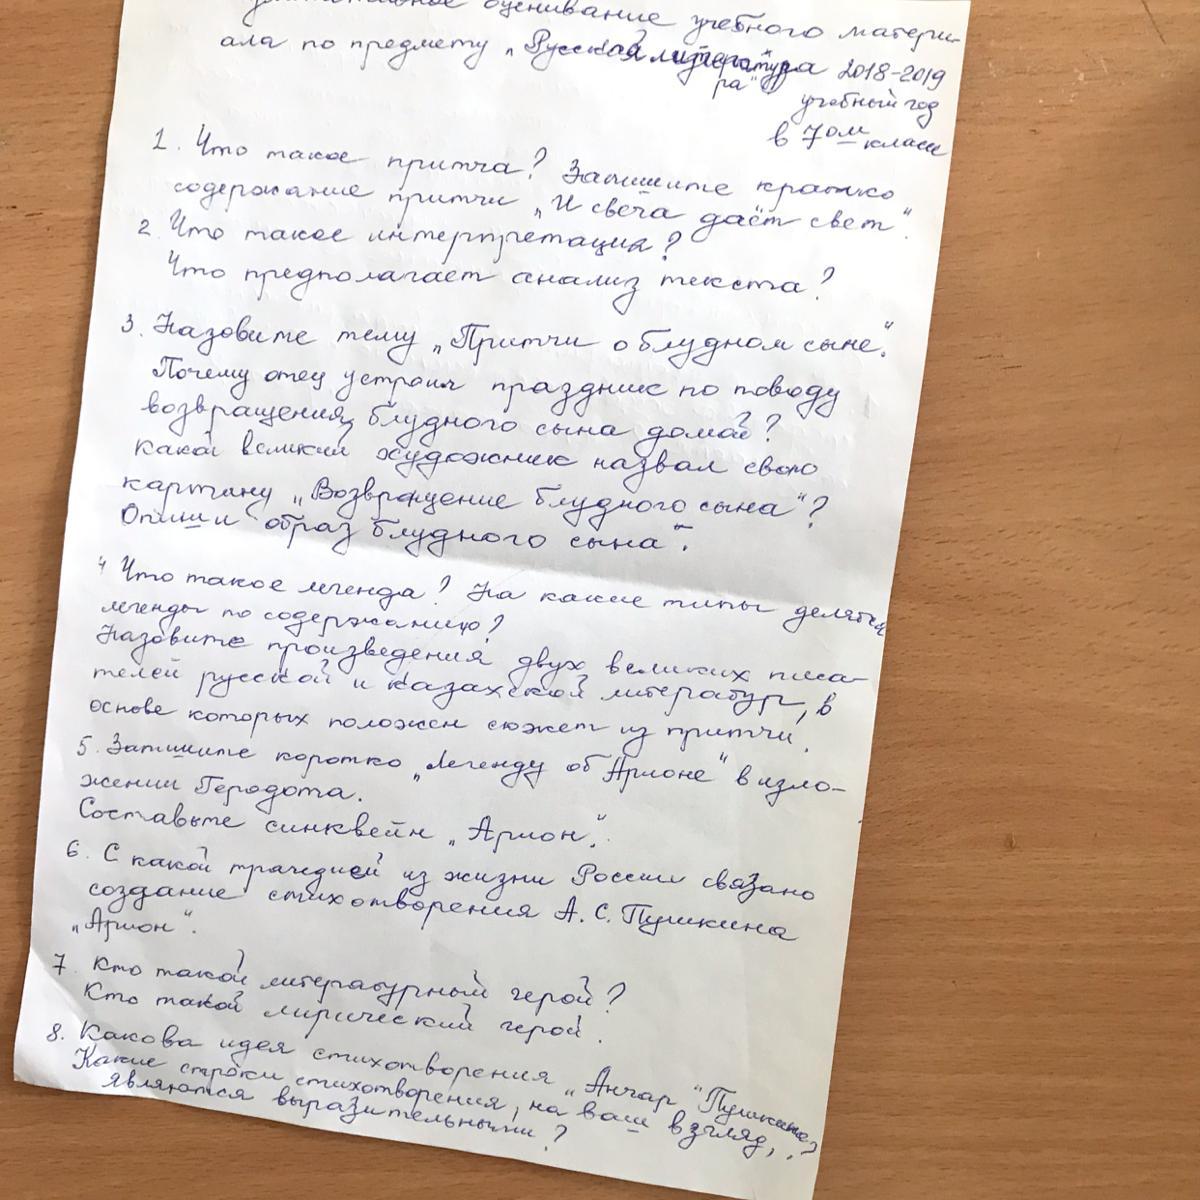 оценивание учебного матери-
ала по предмету „Русская литература 2018-2019
ра"
учебный год
в 7ом классе
1. Что такое притча? Запишите кратко
содержание притчи „И свеча даёт свет".
2. Что такое интерпретация?
Что предполагает анализ текста?
3. Назовите тему „Притчи о блудном сыне."
Почему отец устроил праздник по поводу
возвращения блудного сына домой?
Какой великий художник назвал свою
картину „Возвращение блудного сына"?
Опиши образ блудного сына".
4 Что такое легенда? На какие типы делятся
легенды по содержанию?
Назовите произведения двух великих писа-
телей русской и казахской литератур, в
основе которых положен сюжет из притчи.
5. Запишите коротко „Легенду об Арионе" в изло-
жении Геродота.
Составьте синквейн „Арион".
6. С какой трагедией из жизни России связано
создание стихотворения А. С. Пушкина
„Арион".
7. Кто такой литературный герой?
Кто такой лирический герой.
8. Какова идея стихотворения „Анчар" Пушкина?
Какие строки стихотворения, на ваш взгляд,
являются выразительными?